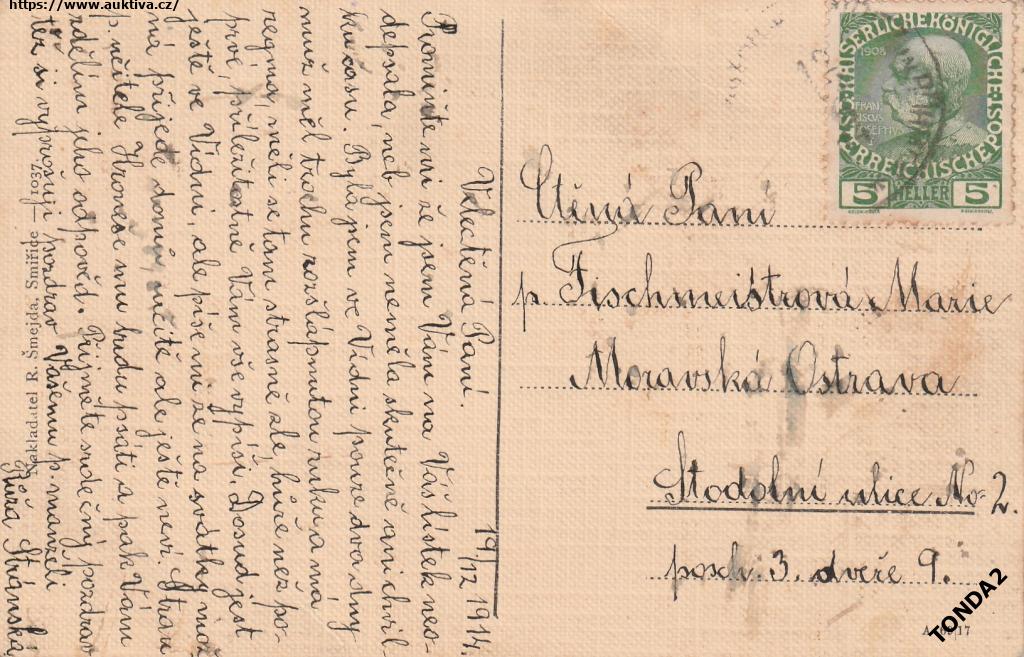 https://www.auktiva.cz/
19/12 1914.
Velectěná Paní.
Promiňte mi že jsem Vám na Váš lístek neo-
depsala, neb jsem neměla skutečně ani chvil-
ku času. Byla jem ve Vídni pouze dva dny
muž měl trochu rozšlápnutou ruku a má
regma, měli se tam strasně zle, hůře než po-
prvé, příležitostně Vám vše vypíši. Dosud jest
ještě ve Vídni, ale píše mi že na svátky mož-
ná přijede domů, určitě ale ještě neví. Stran
p. učitele Hroneše mu budu psáti a pak Vám
zdělím jeho odpověd. Přijměte srdečný pozdrav
též si vyprošuji pozdrav Vašemu p. manželi
Růža Stránská
Nakladatel R. Šmejda, Smiřice — 1037.
KAISERLICHE KÖNIGLICHE
ÖSTERREICHISCHE POST
1908
FRAN
CISCUS
JOSEPHUS I
5 HELLER 5
Ctěná Paní
p. Fischmeistrová Marie
Moravská Ostrava
Stodolní ulice No 2.
posch. 3. dveře 9.
TONDA2